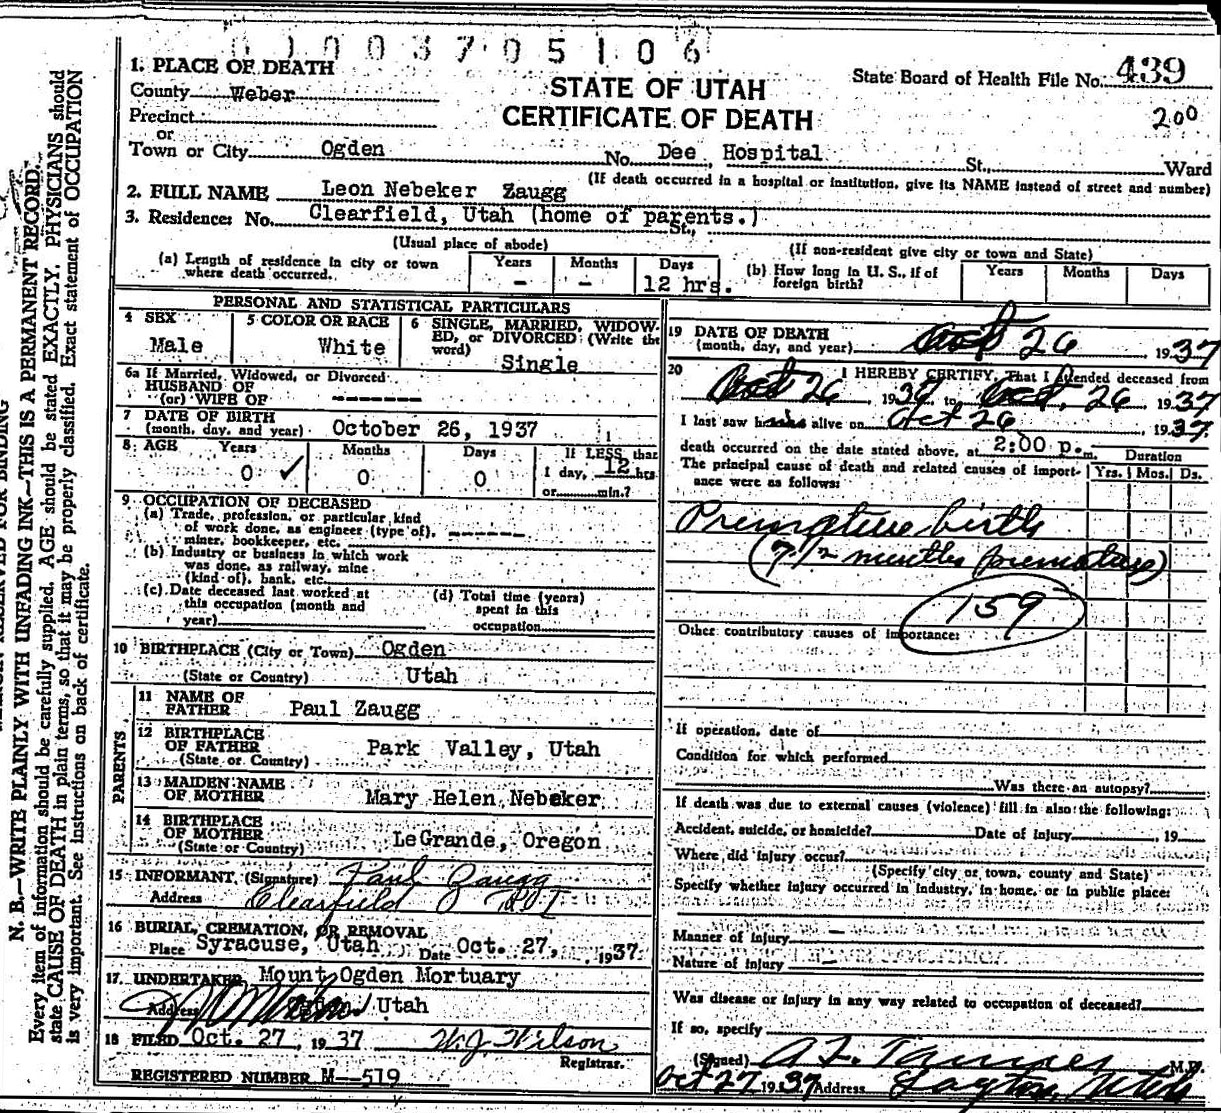 01003705106
1. PLACE OF DEATH
County Weber
STATE OF UTAH
CERTIFICATE OF DEATH
State Board of Health File No. 439
200
Precinct
or
Town or City Ogden No. Dee Hospital St., Ward
(If death occurred in a hospital or institution, give its NAME instead of street and number)
2. FULL NAME Leon Nebeker Zaugg
3. Residence: No. Clearfield, Utah (home of parents.) St.,
(Usual place of abode) (If non-resident give city or town and State)
(a) Length of residence in city or town where death occurred. Years - Months - Days 12 hrs.
(b) How long in U. S., if of foreign birth? Years Months Days
PERSONAL AND STATISTICAL PARTICULARS
4 SEX Male
5 COLOR OR RACE White
6 SINGLE, MARRIED, WIDOWED, or DIVORCED (Write the word) Single
6a If Married, Widowed, or Divorced
HUSBAND OF
(or) WIFE OF -------
7 DATE OF BIRTH
(month, day, and year) October 26, 1937
8 AGE Years 0 ✓ Months 0 Days 0 If LESS that 1 day, 12 hrs or min.?
9 OCCUPATION OF DECEASED
(a) Trade, profession, or particular kind
of work done, as engineer (type of), ------
miner, bookkeeper, etc.
(b) Industry or business in which work
was done, as railway, mine
(kind of), bank, etc.
(c) Date deceased last worked at
this occupation (month and
year)
(d) Total time (years)
spent in this
occupation
10 BIRTHPLACE (City or Town) Ogden
(State or Country) Utah
PARENTS
11 NAME OF
FATHER Paul Zaugg
12 BIRTHPLACE
OF FATHER Park Valley, Utah
(State or Country)
13 MAIDEN NAME
OF MOTHER Mary Helen Nebeker
14 BIRTHPLACE
OF MOTHER
(State or Country) LeGrande, Oregon
15 INFORMANT (Signature) Paul Zaugg
Address Clearfield
16 BURIAL, CREMATION, OR REMOVAL
Place Syracuse, Utah Date Oct. 27, 1937.
17 UNDERTAKER Mount Ogden Mortuary
Address Utah
18 FILED Oct. 27, 1937 W. J. Wilson
Registrar.
REGISTERED NUMBER M--519
19 DATE OF DEATH
(month, day, and year) Oct 26 1937
20 I HEREBY CERTIFY, That I attended deceased from
Oct 26, 1936 to Oct, 26 1937
I last saw him alive on Oct 26, 1937.
death occurred on the date stated above, at 2:00 p.m.
Duration
The principal cause of death and related causes of importance were as follows: Yrs. Mos. Ds.
Premature birth
(7 1/2 months premature)
159
Other contributory causes of importance:
If operation, date of
Condition for which performed
Was there an autopsy?
If death was due to external causes (violence) fill in also the following:
Accident, suicide, or homicide? Date of injury, 19
Where did injury occur?
(Specify city or town, county and State)
Specify whether injury occurred in industry, in home, or in public place:
Manner of injury -
Nature of injury -
Was disease or injury in any way related to occupation of deceased?
If so, specify
(Signed) A. Z. Tanner M.D.
Oct 27 1937 Address Layton, Utah
N. B.—WRITE PLAINLY WITH UNFADING INK—THIS IS A PERMANENT RECORD.
Every item of information should be carefully supplied. AGE should be stated EXACTLY. PHYSICIANS should
state CAUSE OF DEATH in plain terms, so that it may be properly classified. Exact statement of OCCUPATION
is very important. See instructions on back of certificate.
RESERVED FOR BINDING